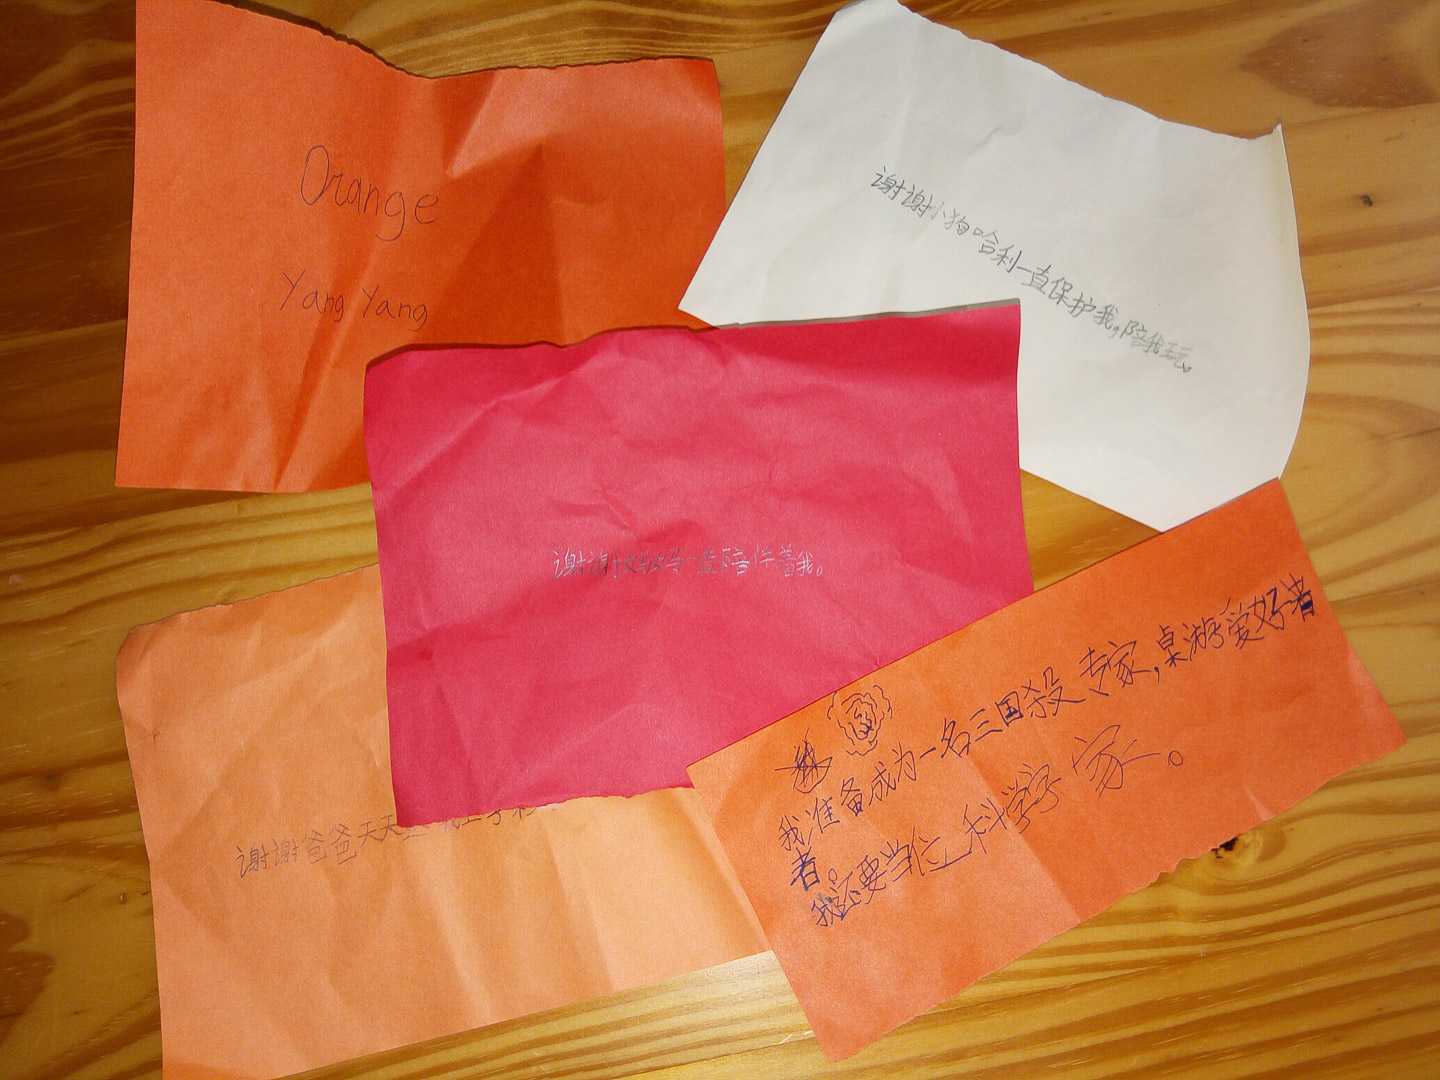 Orange
Yang Yang
谢谢小狗哈利一直保护我,陪我玩。
谢谢妈妈一直陪伴着我。
谢谢爸爸天天
我准备成为一名三国殺专家,桌游爱好者
者。
我还要当位科学家。